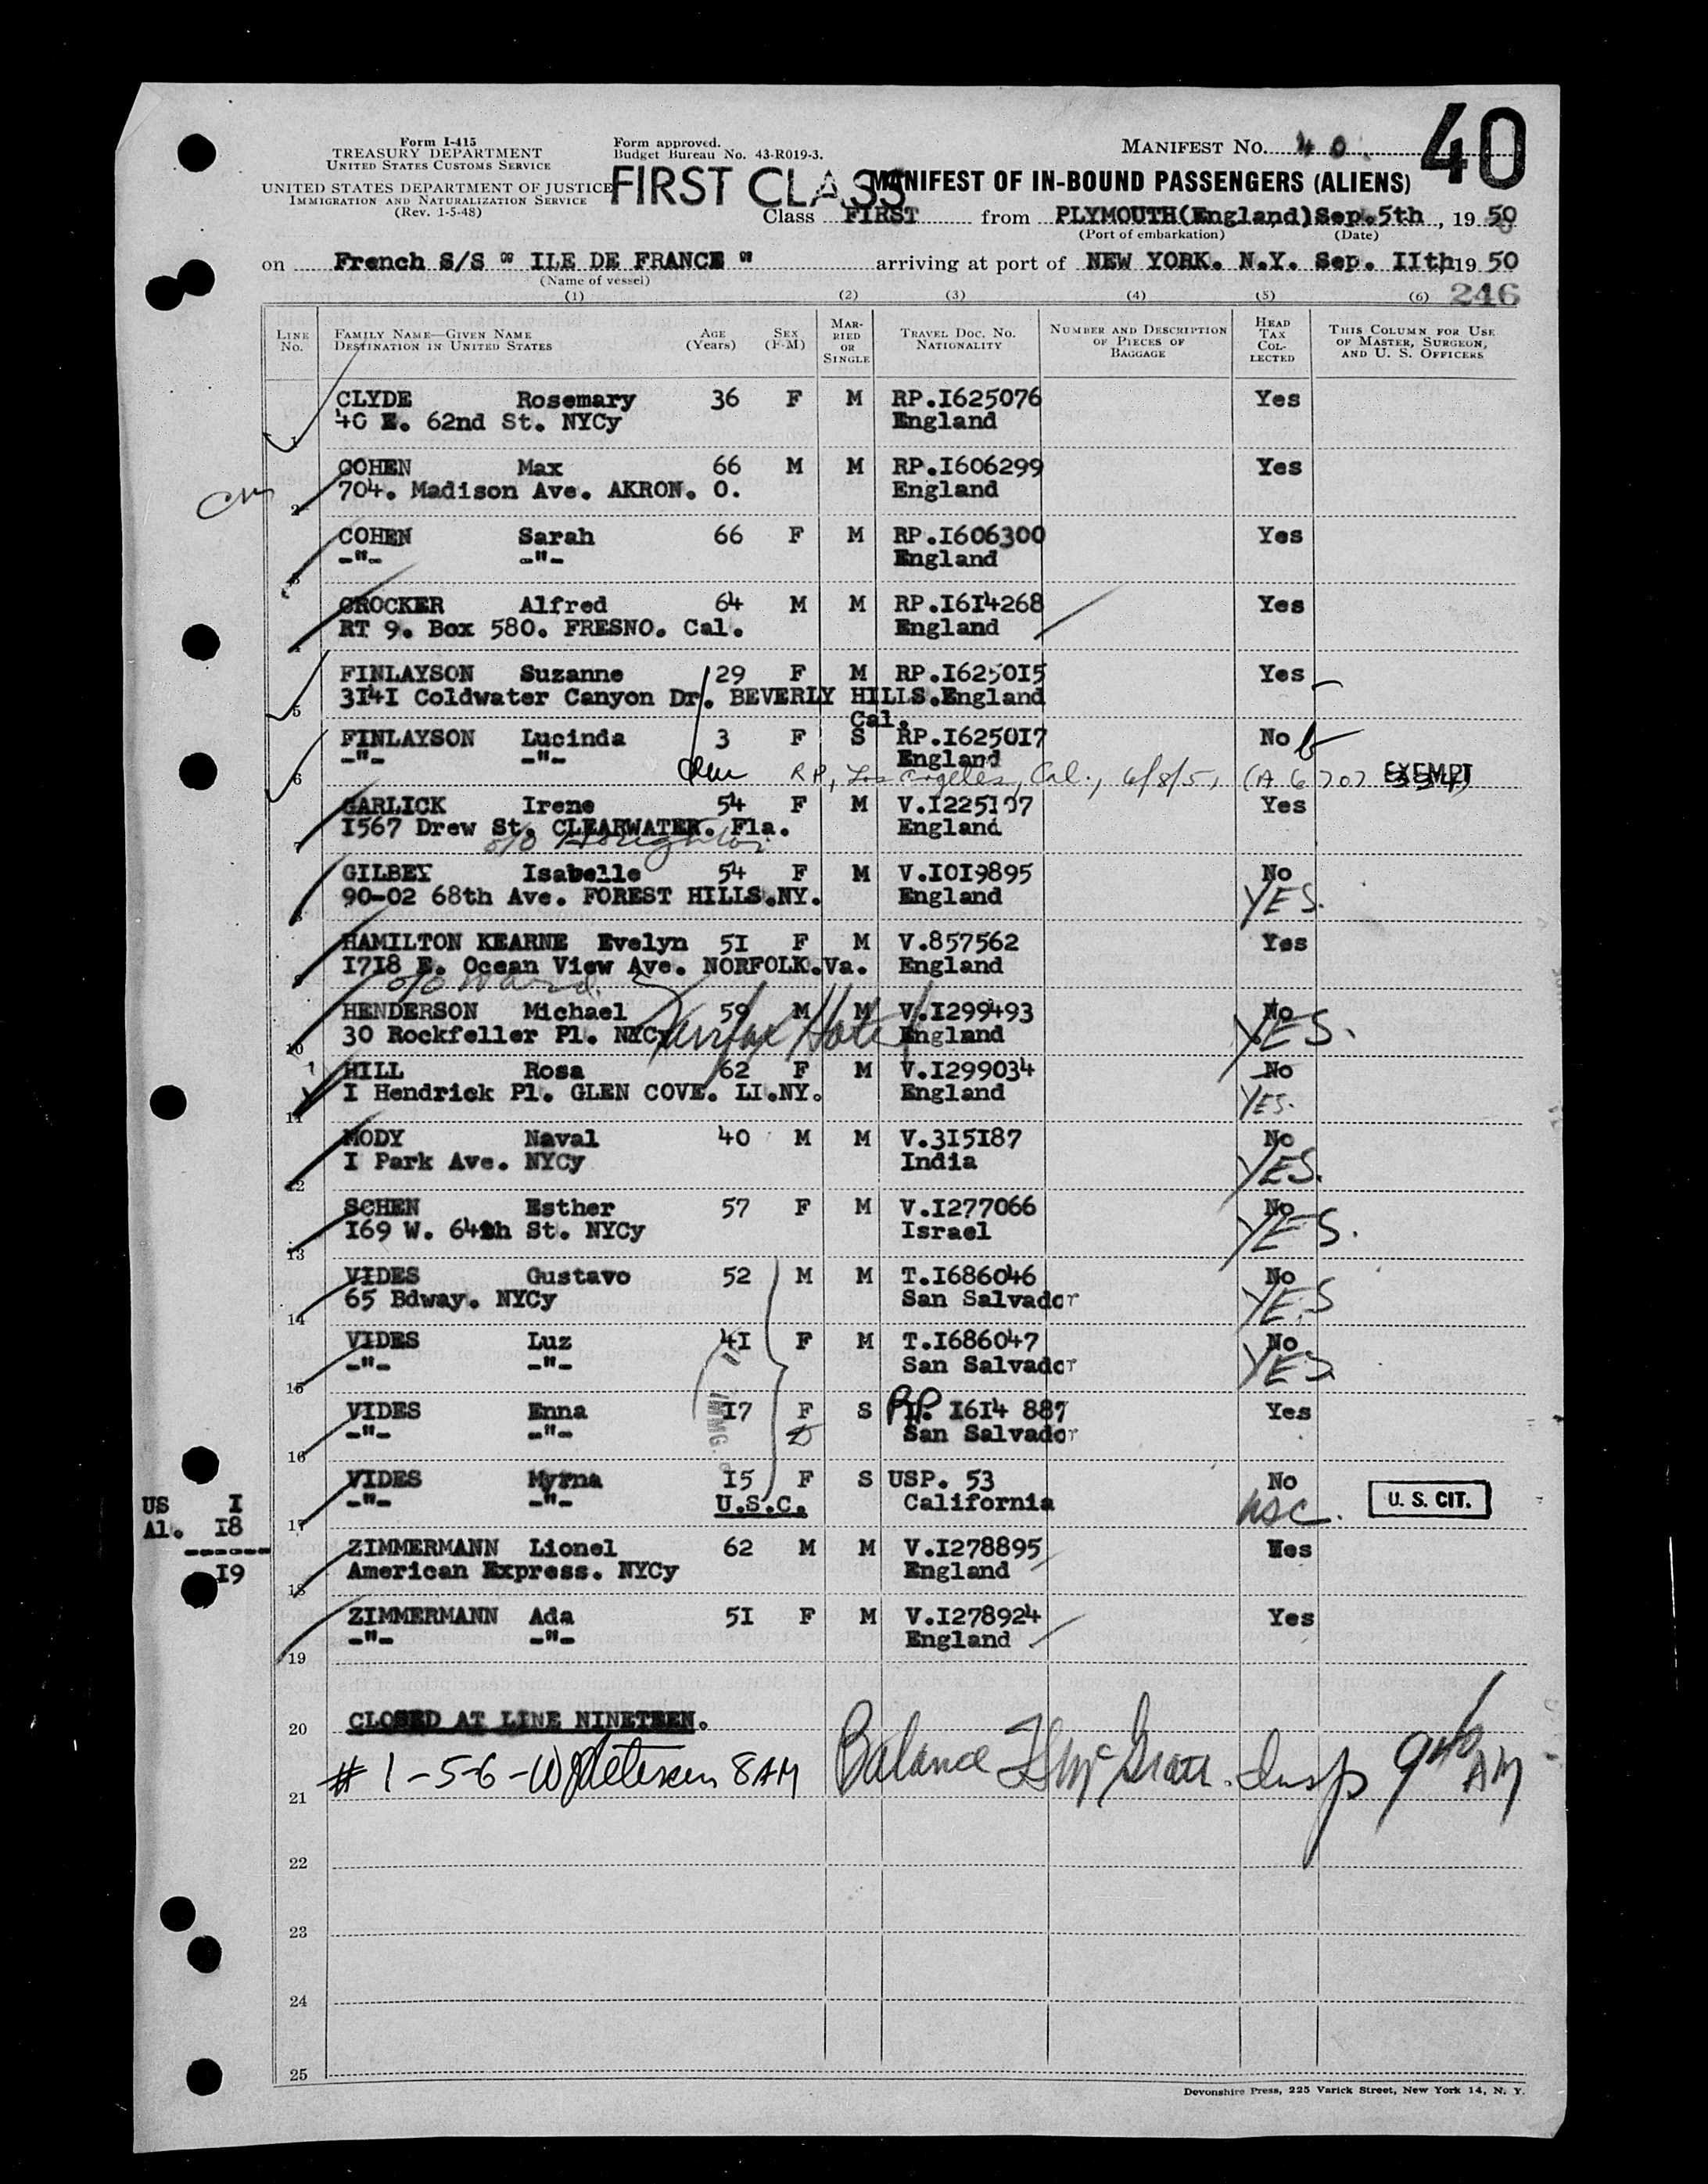 Form I-415
TREASURY DEPARTMENT
UNITED STATES CUSTOMS SERVICE
UNITED STATES DEPARTMENT OF JUSTICE
IMMIGRATION AND NATURALIZATION SERVICE
(Rev. 1-5-48)
Form approved.
Budget Bureau No. 43-R019-3.
MANIFEST NO. 40
40
FIRST CLASS
MANIFEST OF IN-BOUND PASSENGERS (ALIENS)
Class FIRST from PLYMOUTH(England)Sep.5th, 1950
(Port of embarkation) (Date)
on French S/S " ILE DE FRANCE " arriving at port of NEW YORK. N.Y. Sep. IIth1950
(Name of vessel)
(1) (2) (3) (4) (5) (6) 246
LINE No. FAMILY NAME—GIVEN NAME DESTINATION IN UNITED STATES AGE (Years) SEX (F-M) MARRIED OR SINGLE TRAVEL DOC. NO. NATIONALITY NUMBER AND DESCRIPTION OF PIECES OF BAGGAGE HEAD TAX COLLECTED THIS COLUMN FOR USE OF MASTER, SURGEON, AND U. S. OFFICERS
CLYDE Rosemary 36 F M RP.I625076 Yes
1 40 E. 62nd St. NYCy England
COHEN Max 66 M M RP.I606299 Yes
2 704. Madison Ave. AKRON. O. England
COHEN Sarah 66 F M RP.I606300 Yes
3 -"- -"- England
CROCKER Alfred 64 M M RP.I6I4268 Yes
4 RT 9. Box 580. FRESNO. Cal. England
FINLAYSON Suzanne 29 F M RP.I6250I5 Yes
5 3I4I Coldwater Canyon Dr. BEVERLY HILLS.England
Cal.
FINLAYSON Lucinda 3 F S RP.I6250I7 No
6 -"- -"- England
RP, Los Angeles, Cal., 6/8/51 (A 6 707 EXEMPT
GARLICK Irene 54 F M V.I225I07 Yes
7 I567 Drew St. CLEARWATER. Fla. England
c/o Houghton
GILBEY Isabelle 54 F M V.I0I9895 No
8 90-02 68th Ave. FOREST HILLS.NY. England YES.
HAMILTON KEARNE Evelyn 5I F M V.857562 Yes
9 I7I8 E. Ocean View Ave. NORFOLK.Va. England
c/o Ward.
HENDERSON Michael 59 M M V.I299493 No
10 30 Rockfeller Pl. NYCy Fairfax Hotel England YES.
HILL Rosa 62 F M V.I299034 No
11 I Hendrick Pl. GLEN COVE. LI.NY. England YES.
MODY Naval 40 M M V.3I5I87 No
12 I Park Ave. NYCy India YES.
SCHEN Esther 57 F M V.I277066 No
13 I69 W. 64th St. NYCy Israel YES.
VIDES Gustavo 52 M M T.I686046 No
14 65 Bdway. NYCy San Salvador YES
VIDES Luz 4I F M T.I686047 No
15 -"- -"- San Salvador YES
VIDES Enna I7 F S RP. I6I4 887 Yes
16 -"- -"- San Salvador
IMMG.
VIDES Myrna I5 F S USP. 53 No
17 -"- -"- U.S.C. California USC. U. S. CIT.
US I
Al. I8
------
I9
ZIMMERMANN Lionel 62 M M V.I278895 Yes
18 American Express. NYCy England
ZIMMERMANN Ada 5I F M V.I278924 Yes
19 -"- -"- England
20 CLOSED AT LINE NINETEEN.
21 # 1-5-6- 8 AM Balance Insp 9 40 AM
22
23
24
25
Devonshire Press, 225 Varick Street, New York 14, N. Y.